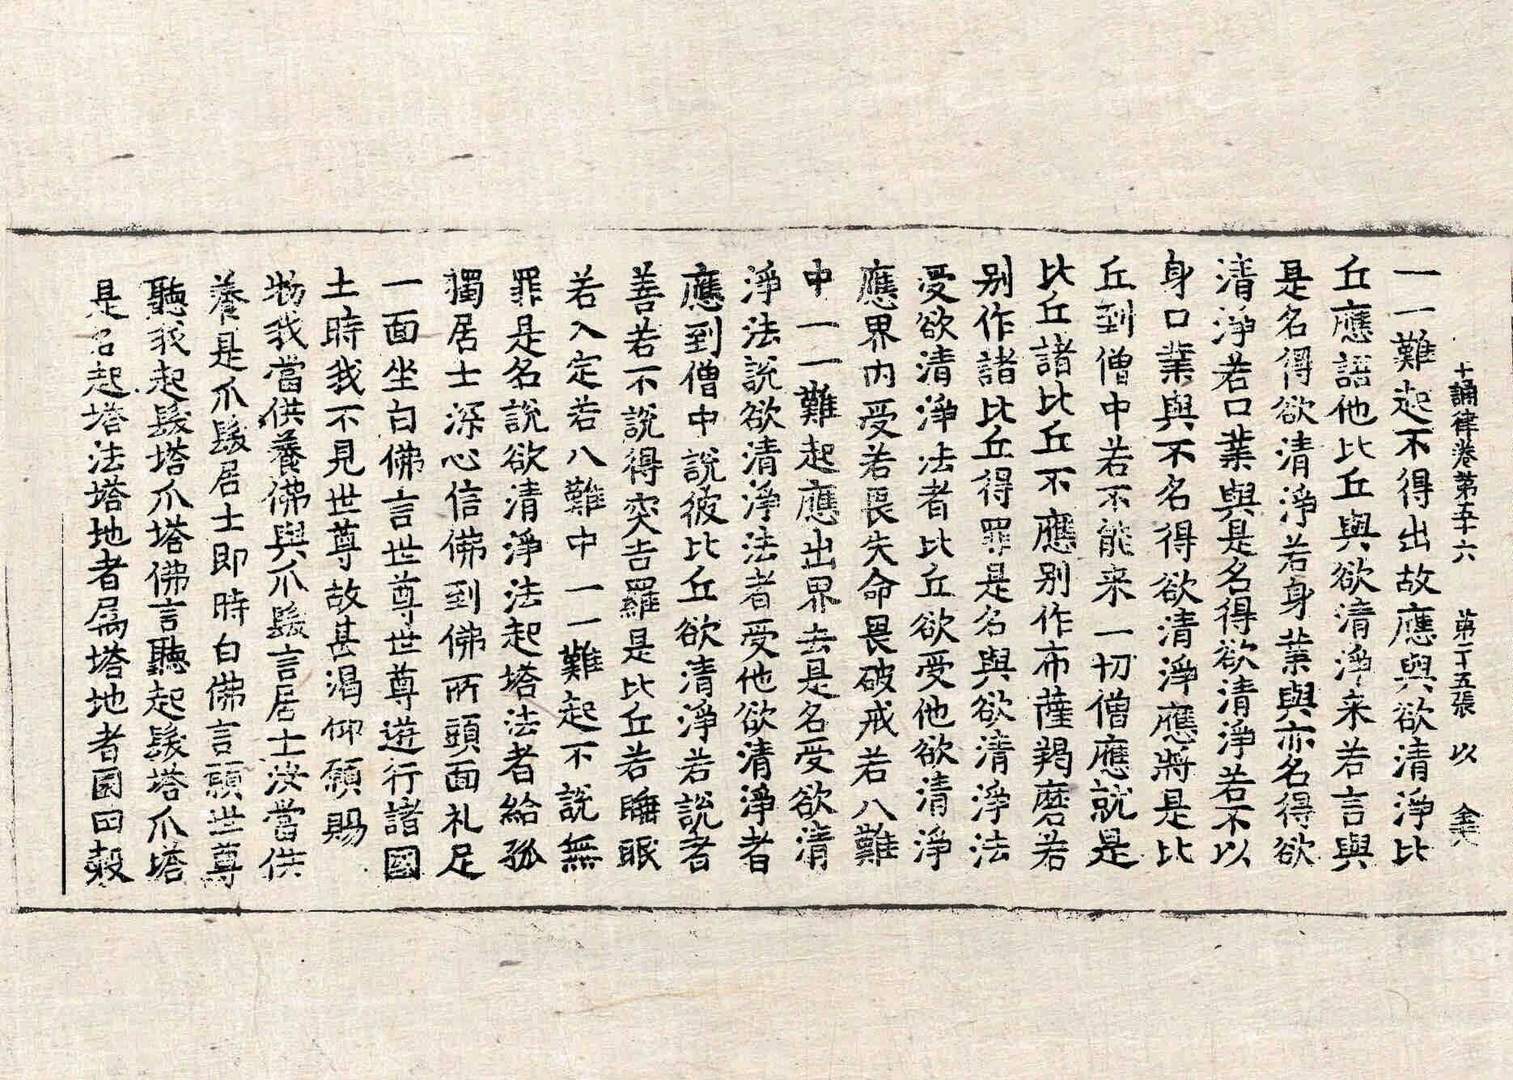 十誦律卷第五十六 第二十五張 以
一一難起不得出故應與欲清淨比
丘應語他比丘與欲清淨来若言與
是名得欲清淨若身業與亦名得欲
清淨若口業與是名得欲清淨若不以
身口業與不名得欲清淨應將是比
丘到僧中若不能来一切僧應就是
比丘諸比丘不應别作布薩羯磨若
别作諸比丘得罪是名與欲清淨法
受欲清淨法者比丘欲受他欲清淨
應界内受若畏失命畏破戒若八難
中一一難起應出界去是名受欲清
淨法說欲清淨法者受他欲清淨者
應到僧中說彼比丘欲清淨若說者
善若不說得突吉羅是比丘若睡眠
若入定若八難中一一難起不說無
罪是名說欲清淨法起塔法者給孤
獨居士深心信佛到佛所頭面礼足
一面坐白佛言世尊世尊遊行諸國
土時我不見世尊故甚渴仰願賜
物我當供養佛與爪髮言居士汝當供
養是爪髮居士即時白佛言願世尊
聽我起髮塔爪塔佛言聽起髮塔爪塔
是名起塔法塔地者屬塔地者園田穀